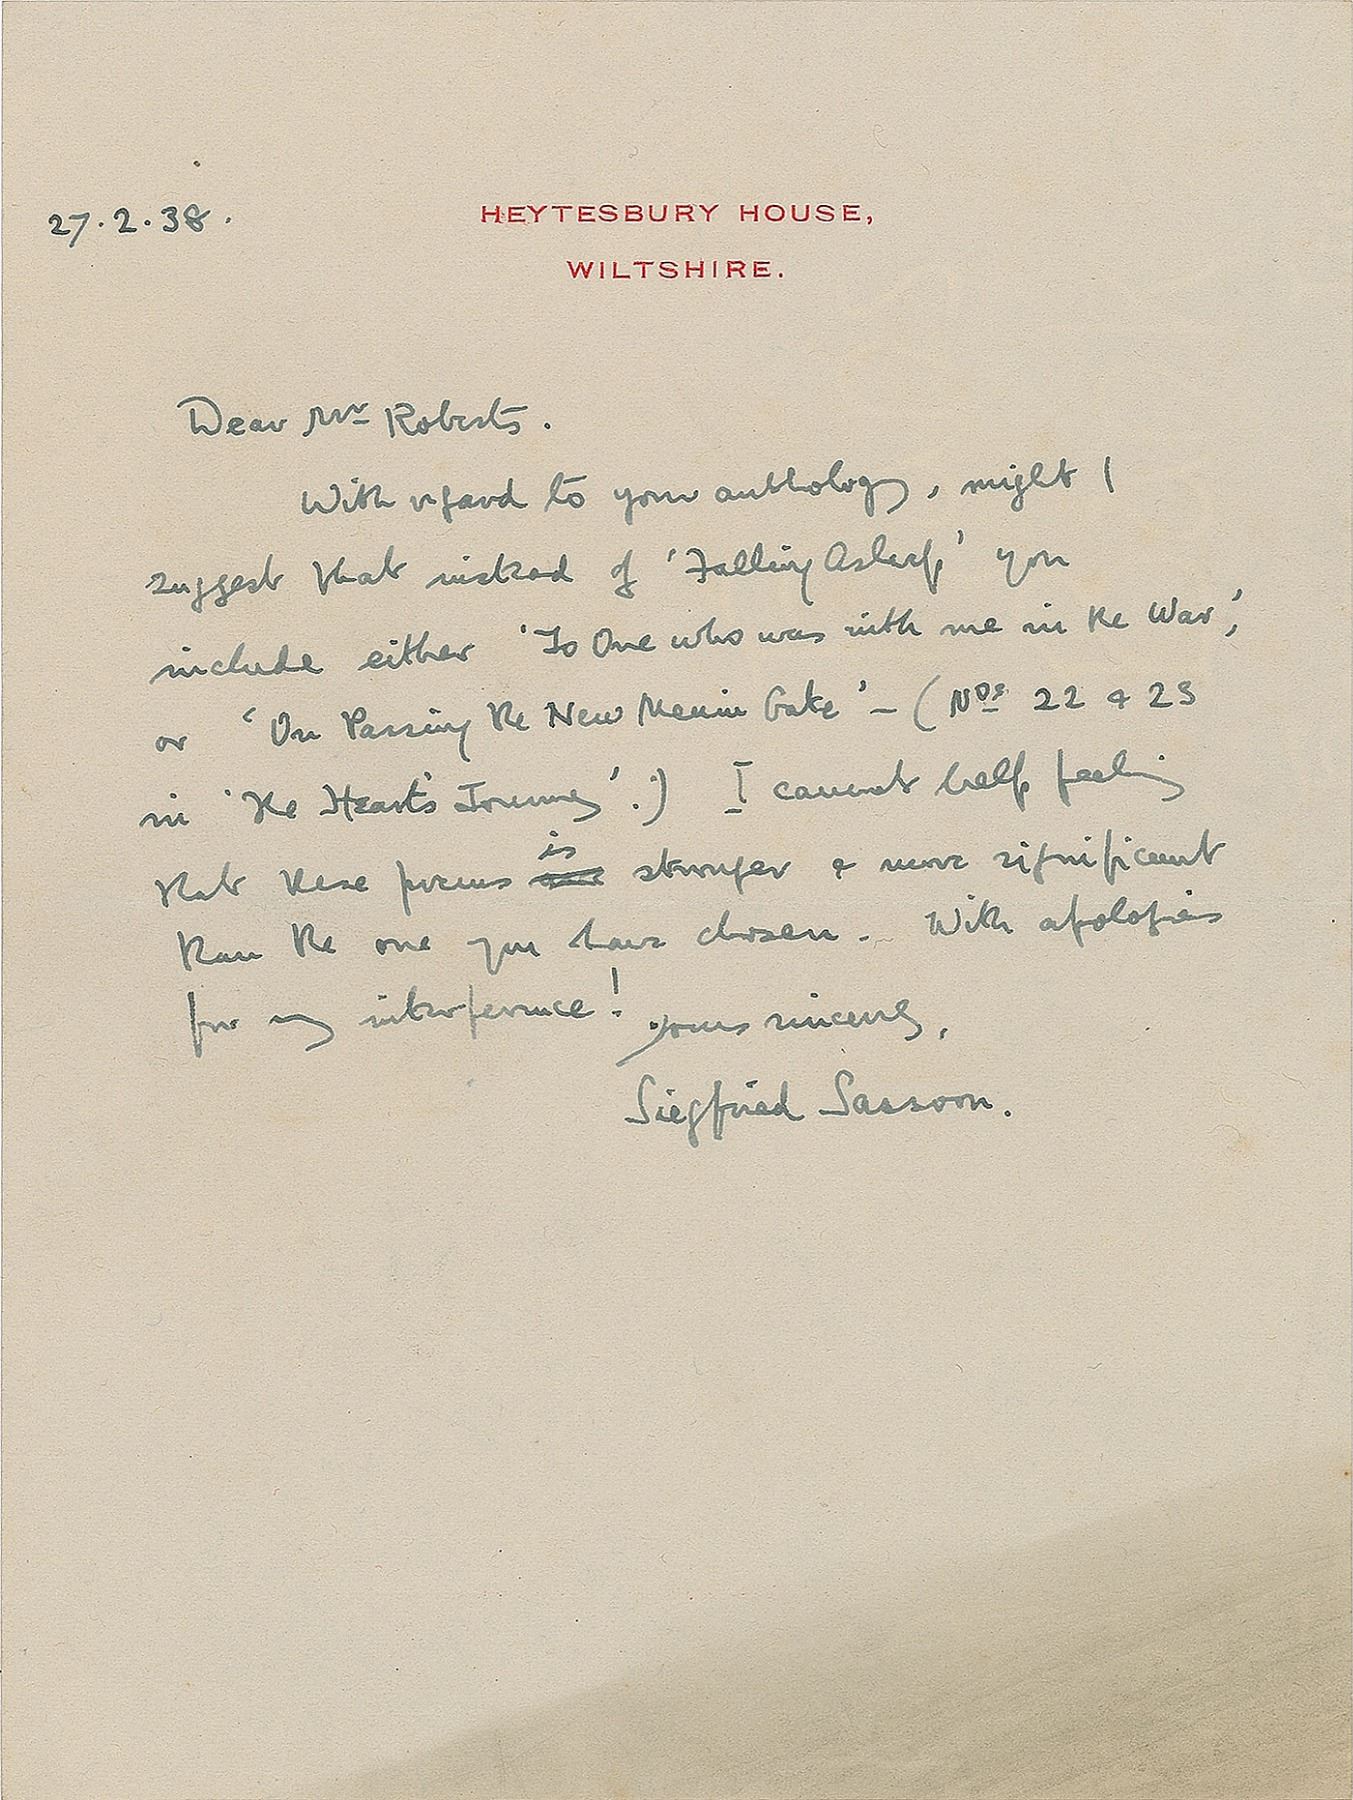 27.2.38.
HEYTESBURY HOUSE,
WILTSHIRE.
Dear Mr Roberts.
With regard to your anthology, might I
suggest that instead of 'Falling Asleep' you
include either 'To One who was with me in the War',
or 'On Passing the New Menin Gate' – (Nos 22 & 23
in 'The Heart's Journey'.) I cannot help feeling
that these poems is stronger & more significant
than the one you have chosen. With apologies
for my interference!
Yours sincerely,
Siegfried Sassoon.